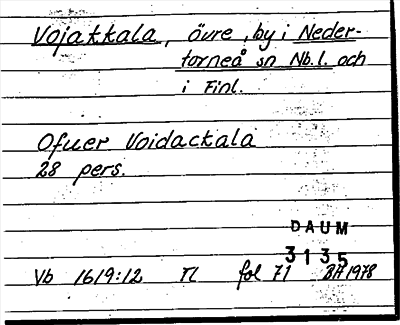 Vojakkala, övre, by i Neder-
torneå sn Nb.l. och
i Finl.
Ofuer Voidackala
28 pers.
DAUM
3135
Vb 1619:12 Tl fol 71 BH 1978